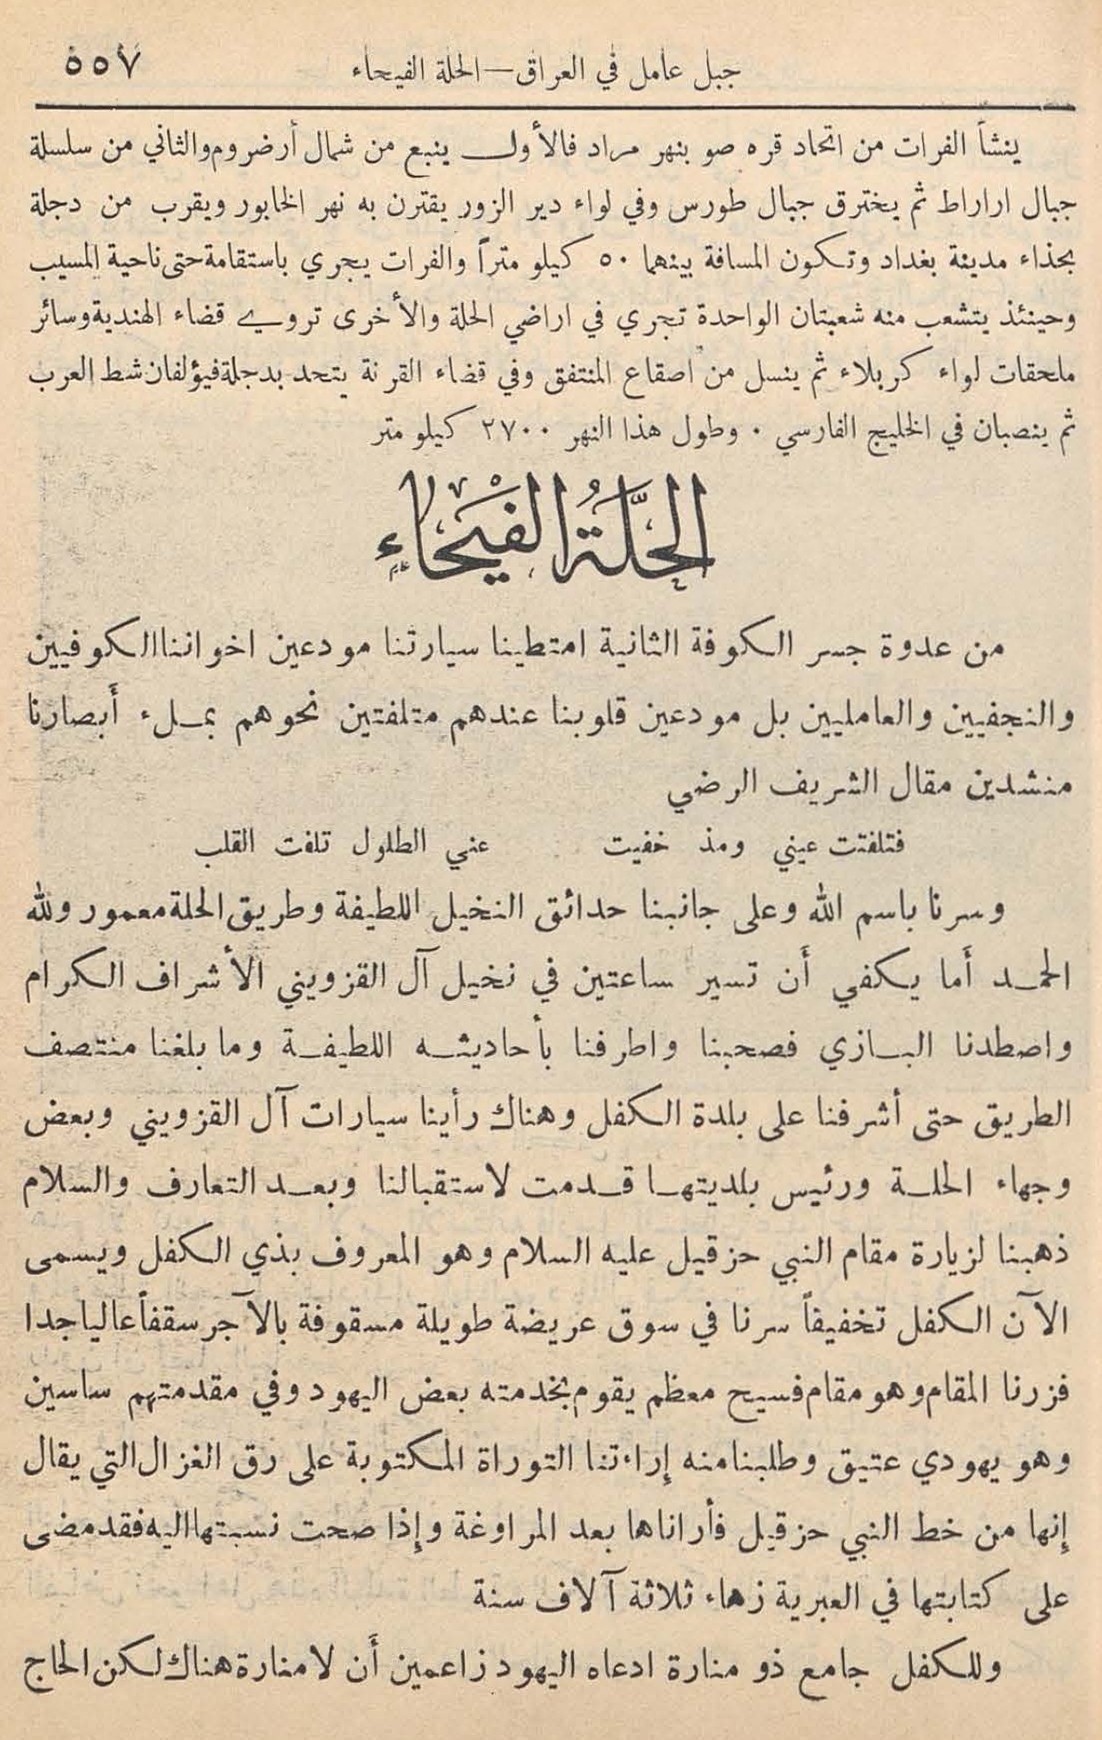 جبل عامل في العراق — الحلة الفيحاء ٥٥٧
ينشأ الفرات من اتحاد قره صو بنهر مراد فالأول ينبع من شمال أرضروم والثاني من سلسلة
جبال اراراط ثم يخترق جبال طورس وفي لواء دير الزور يقترن به نهر الخابور ويقرب من دجلة
بحذاء مدينة بغداد وتكون المسافة بينهما ٥٠ كيلو متراً والفرات يجري باستقامة حتى ناحية المسيب
وحينئذ يتشعب منه شعبتان الواحدة تجري في اراضي الحلة والأخرى تروي قضاء الهندية وسائر
ملحقات لواء كربلاء ثم ينسل من اصقاع المنتفق وفي قضاء القرنة يتحد بدجلة فيؤلفان شط العرب
ثم ينصبان في الخليج الفارسي ٠ وطول هذا النهر ٢٧٠٠ كيلو متر
الحلَّةُ الفَيْحَاءِ
من عدوة جسر الكوفة الثانية امتطينا سيارتنا مودعين اخواننا الكوفيين
والنجفيين والعامليين بل مودعين قلوبنا عندهم متلفتين نحوهم بملء أبصارنا
منشدين مقال الشريف الرضي
فتلفتت عيني ومذ خفيت عني الطلول تلفت القلب
وسرنا باسم الله وعلى جانبنا حدائق النخيل اللطيفة وطريق الحلة معمور ولله
الحمد أما يكفي أن تسير ساعتين في نخيل آل القزويني الأشراف الكرام
واصطدنا البازي فصحبنا واطرفنا بأحاديثه اللطيفة وما بلغنا منتصف
الطريق حتى أشرفنا على بلدة الكفل وهناك رأينا سيارات آل القزويني وبعض
وجهاء الحلة ورئيس بلديتها قدمت لاستقبالنا وبعد التعارف والسلام
ذهبنا لزيارة مقام النبي حزقيل عليه السلام وهو المعروف بذي الكفل ويسمى
الآن الكفل تخفيفاً سرنا في سوق عريضة طويلة مسقوفة بالآجر سقفاً عاليا جدا
فزرنا المقام وهو مقام فسيح معظم يقوم بخدمته بعض اليهود وفي مقدمتهم ساسين
وهو يهودي عتيق وطلبنا منه إراءتنا التوراة المكتوبة على رق الغزال التي يقال
إنها من خط النبي حزقيل فأراناها بعد المراوغة وإذا صحت نسبتها اليه فقد مضى
على كتابتها في العبرية زهاء ثلاثة آلاف سنة
وللكفل جامع ذو منارة ادعاه اليهود زاعمين أن لا منارة هناك لكن الحاج